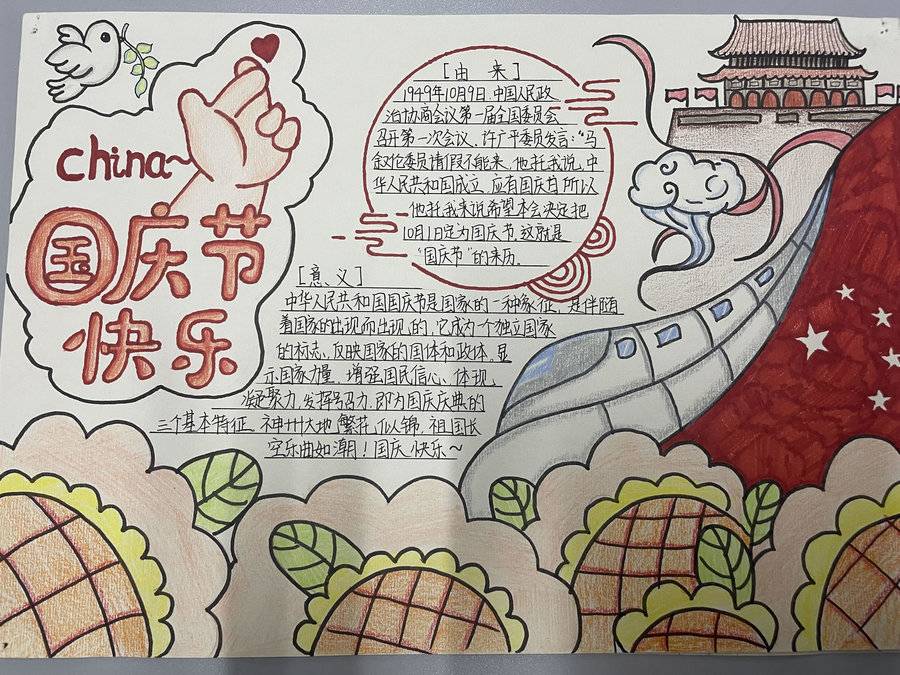 China~
国庆节
快乐
[由 来]
1949年10月9日,中国人民政
治协商会议第一届全国委员会
召开第一次会议,许广平委员发言:“马
叙伦委员请假不能来,他托我说,中
华人民共和国成立,应有国庆日,所以
他托我来说希望本会决定把
10月1日定为国庆节,这就是
“国庆节”的来历。
[意、义]
中华人民共和国国庆节是国家的一种象征,是伴随
着国家的出现而出现的,它成为一个独立国家
的标志、反映国家的国体和政体。显
示国家力量、增强国民信心、体现,
凝聚力,发挥号召力,即为国庆庆典的
三个基本特征,神州大地繁花似锦,祖国长
空乐曲如潮!国庆快乐~